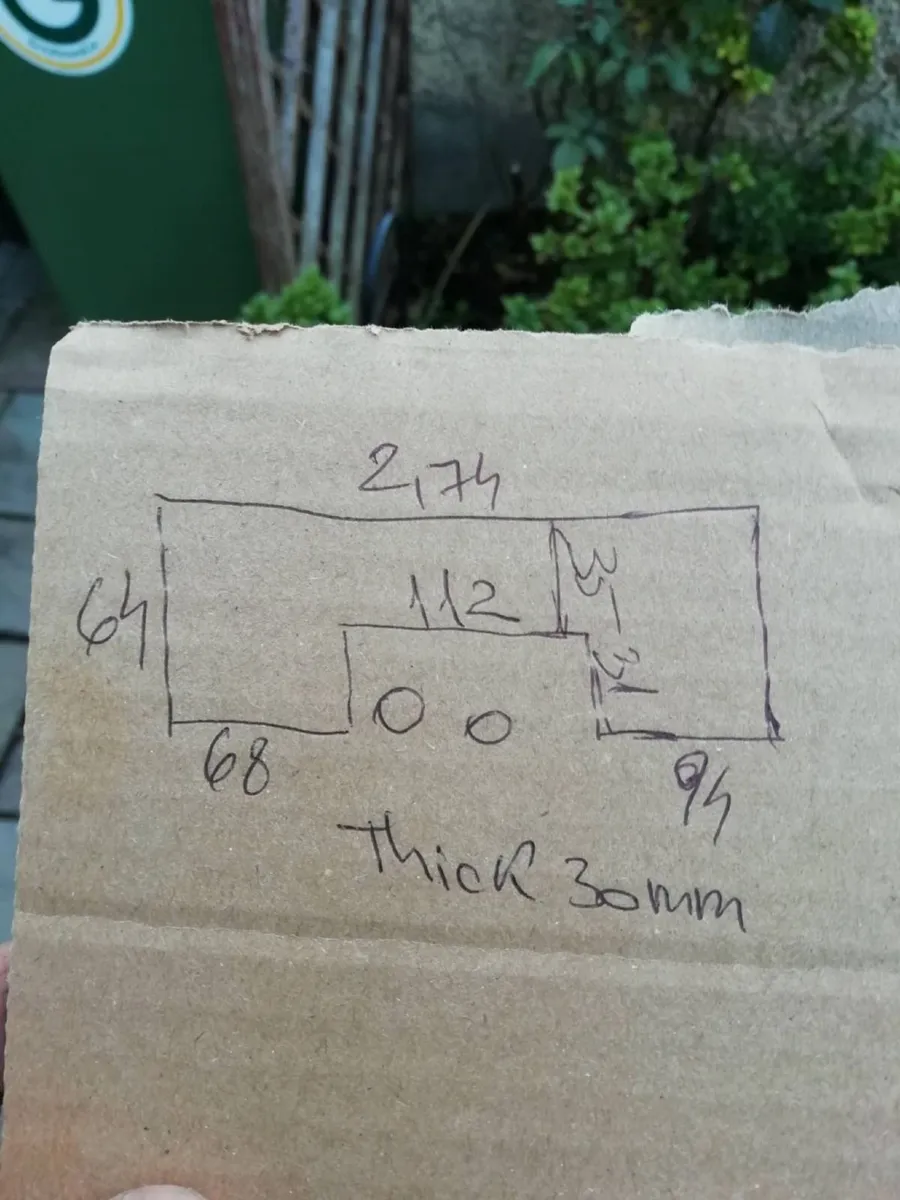 2,74
64
112
33
31
68
94
Thick 30mm
G